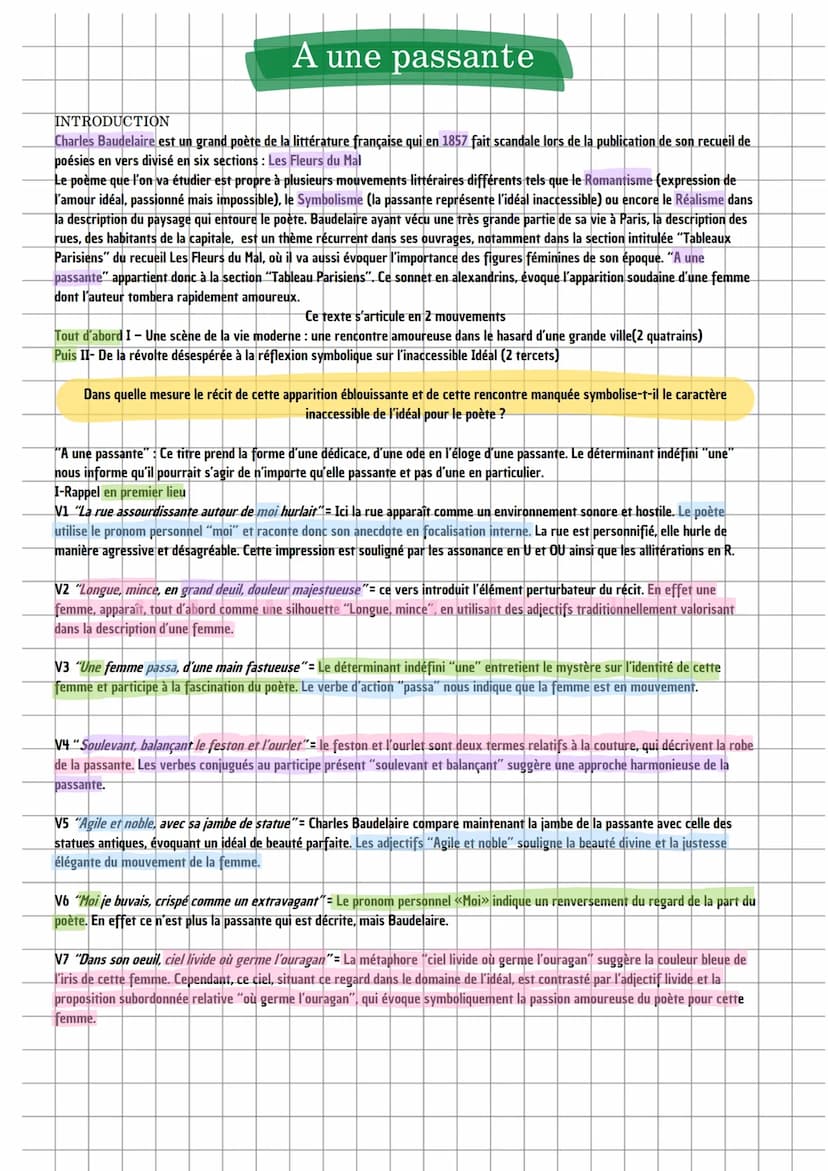 A une passante
INTRODUCTION
Charles Baudelaire est un grand poète de la littérature française qui en 1857 fait scandale lors de la publication de son recueil de
poésies en vers divisé en six sections : Les Fleurs du Mal
Le poème que l'on va étudier est propre à plusieurs mouvements littéraires différents tels que le Romantisme (expression de
l'amour idéal, passionné mais impossible), le Symbolisme (la passante représente l'idéal inaccessible) ou encore le Réalisme dans
la description du paysage qui entoure le poète. Baudelaire ayant vécu une très grande partie de sa vie à Paris, la description des
rues, des habitants de la capitale, est un thème récurrent dans ses ouvrages, notamment dans la section intitulée "Tableaux
Parisiens" du recueil Les Fleurs du Mal, où il va aussi évoquer l'importance des figures féminines de son époque. "A une
passante" appartient donc à la section "Tableau Parisiens". Ce sonnet en alexandrins, évoque l'apparition soudaine d'une femme
dont l'auteur tombera rapidement amoureux.
Ce texte s'articule en 2 mouvements
Tout d'abord I – Une scène de la vie moderne : une rencontre amoureuse dans le hasard d'une grande ville(2 quatrains)
Puis II- De la révolte désespérée à la réflexion symbolique sur l'inaccessible Idéal (2 tercets)
Dans quelle mesure le récit de cette apparition éblouissante et de cette rencontre manquée symbolise-t-il le caractère
inaccessible de l'idéal pour le poète ?
"A une passante" : Ce titre prend la forme d'une dédicace, d'une ode en l'éloge d'une passante. Le déterminant indéfini "une"
nous informe qu'il pourrait s'agir de n'importe qu'elle passante et pas d'une en particulier.
I-Rappel en premier lieu
V1 "La rue assourdissante autour de moi hurlait"= Ici la rue apparaît comme un environnement sonore et hostile. Le poète
utilise le pronom personnel "moi" et raconte donc son anecdote en focalisation interne. La rue est personnifié, elle hurle de
manière agressive et désagréable. Cette impression est souligné par les assonance en U et OU ainsi que les allitérations en R.
V2 "Longue, mince, en grand deuil, douleur majestueuse"= ce vers introduit l'élément perturbateur du récit. En effet une
femme, apparaît, tout d'abord comme une silhouette "Longue, mince", en utilisant des adjectifs traditionnellement valorisant
dans la description d'une femme.
V3 "Une femme passa, d'une main fastueuse"= Le déterminant indéfini "une" entretient le mystère sur l'identité de cette
femme et participe à la fascination du poète. Le verbe d'action "passa" nous indique que la femme est en mouvement.
V4 "Soulevant, balançant le feston et l'ourlet"= le feston et l'ourlet sont deux termes relatifs à la couture, qui décrivent la robe
de la passante. Les verbes conjugués au participe présent "soulevant et balançant" suggère une approche harmonieuse de la
passante.
V5 "Agile et noble, avec sa jambe de statue"= Charles Baudelaire compare maintenant la jambe de la passante avec celle des
statues antiques, évoquant un idéal de beauté parfaite. Les adjectifs "Agile et noble" souligne la beauté divine et la justesse
élégante du mouvement de la femme.
V6 "Moi je buvais, crispé comme un extravagant"= Le pronom personnel «Moi» indique un renversement du regard de la part du
poète. En effet ce n'est plus la passante qui est décrite, mais Baudelaire.
V7 "Dans son oeuil, ciel livide où germe l'ouragan"= La métaphore "ciel livide où germe l'ouragan" suggère la couleur bleue de
l'iris de cette femme. Cependant, ce ciel, situant ce regard dans le domaine de l'idéal, est contrasté par l'adjectif livide et la
proposition subordonnée relative "où germe l'ouragan", qui évoque symboliquement la passion amoureuse du poète pour cette
femme.